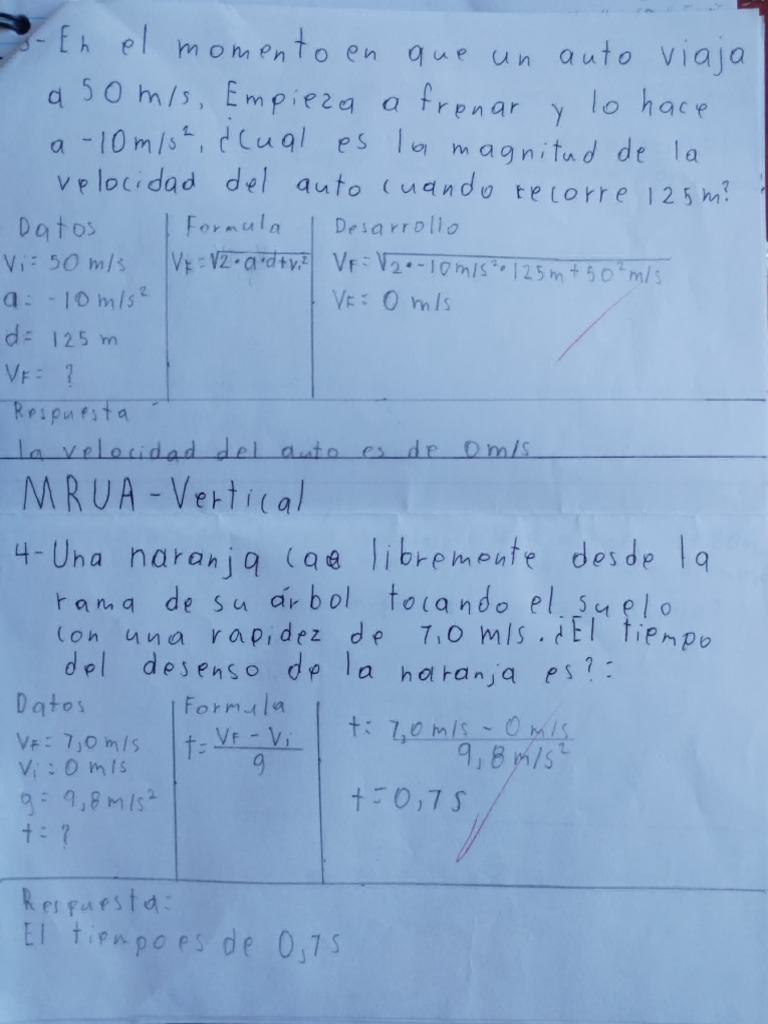 3- En el momento en que un auto viaja
a 50 m/s. Empieza a frenar y lo hace
a -10 m/s². ¿Cual es la magnitud de la
velocidad del auto cuando recorre 125 m?
Datos
Vi= 50 m/s
a= -10 m/s²
d= 125 m
VF= ?
Formula
VF=√2·a·d+Vi²
Desarrollo
VF=√2·-10 m/s²·125m+50² m/s
VF= 0 m/s
Respuesta
la velocidad del auto es de 0 m/s
MRUA-Vertical
4- Una naranja cae libremente desde la
rama de su árbol tocando el suelo
con una rapidez de 7,0 m/s. ¿El tiempo
del desenso de la naranja es?:
Datos
VF= 7,0 m/s
Vi= 0 m/s
g= 9,8 m/s²
t= ?
Formula
t= VF - Vi
g
t: 7,0 m/s - 0 m/s
9,8 m/s²
t=0,7 s
Respuesta:
El tiempo es de 0,7 s